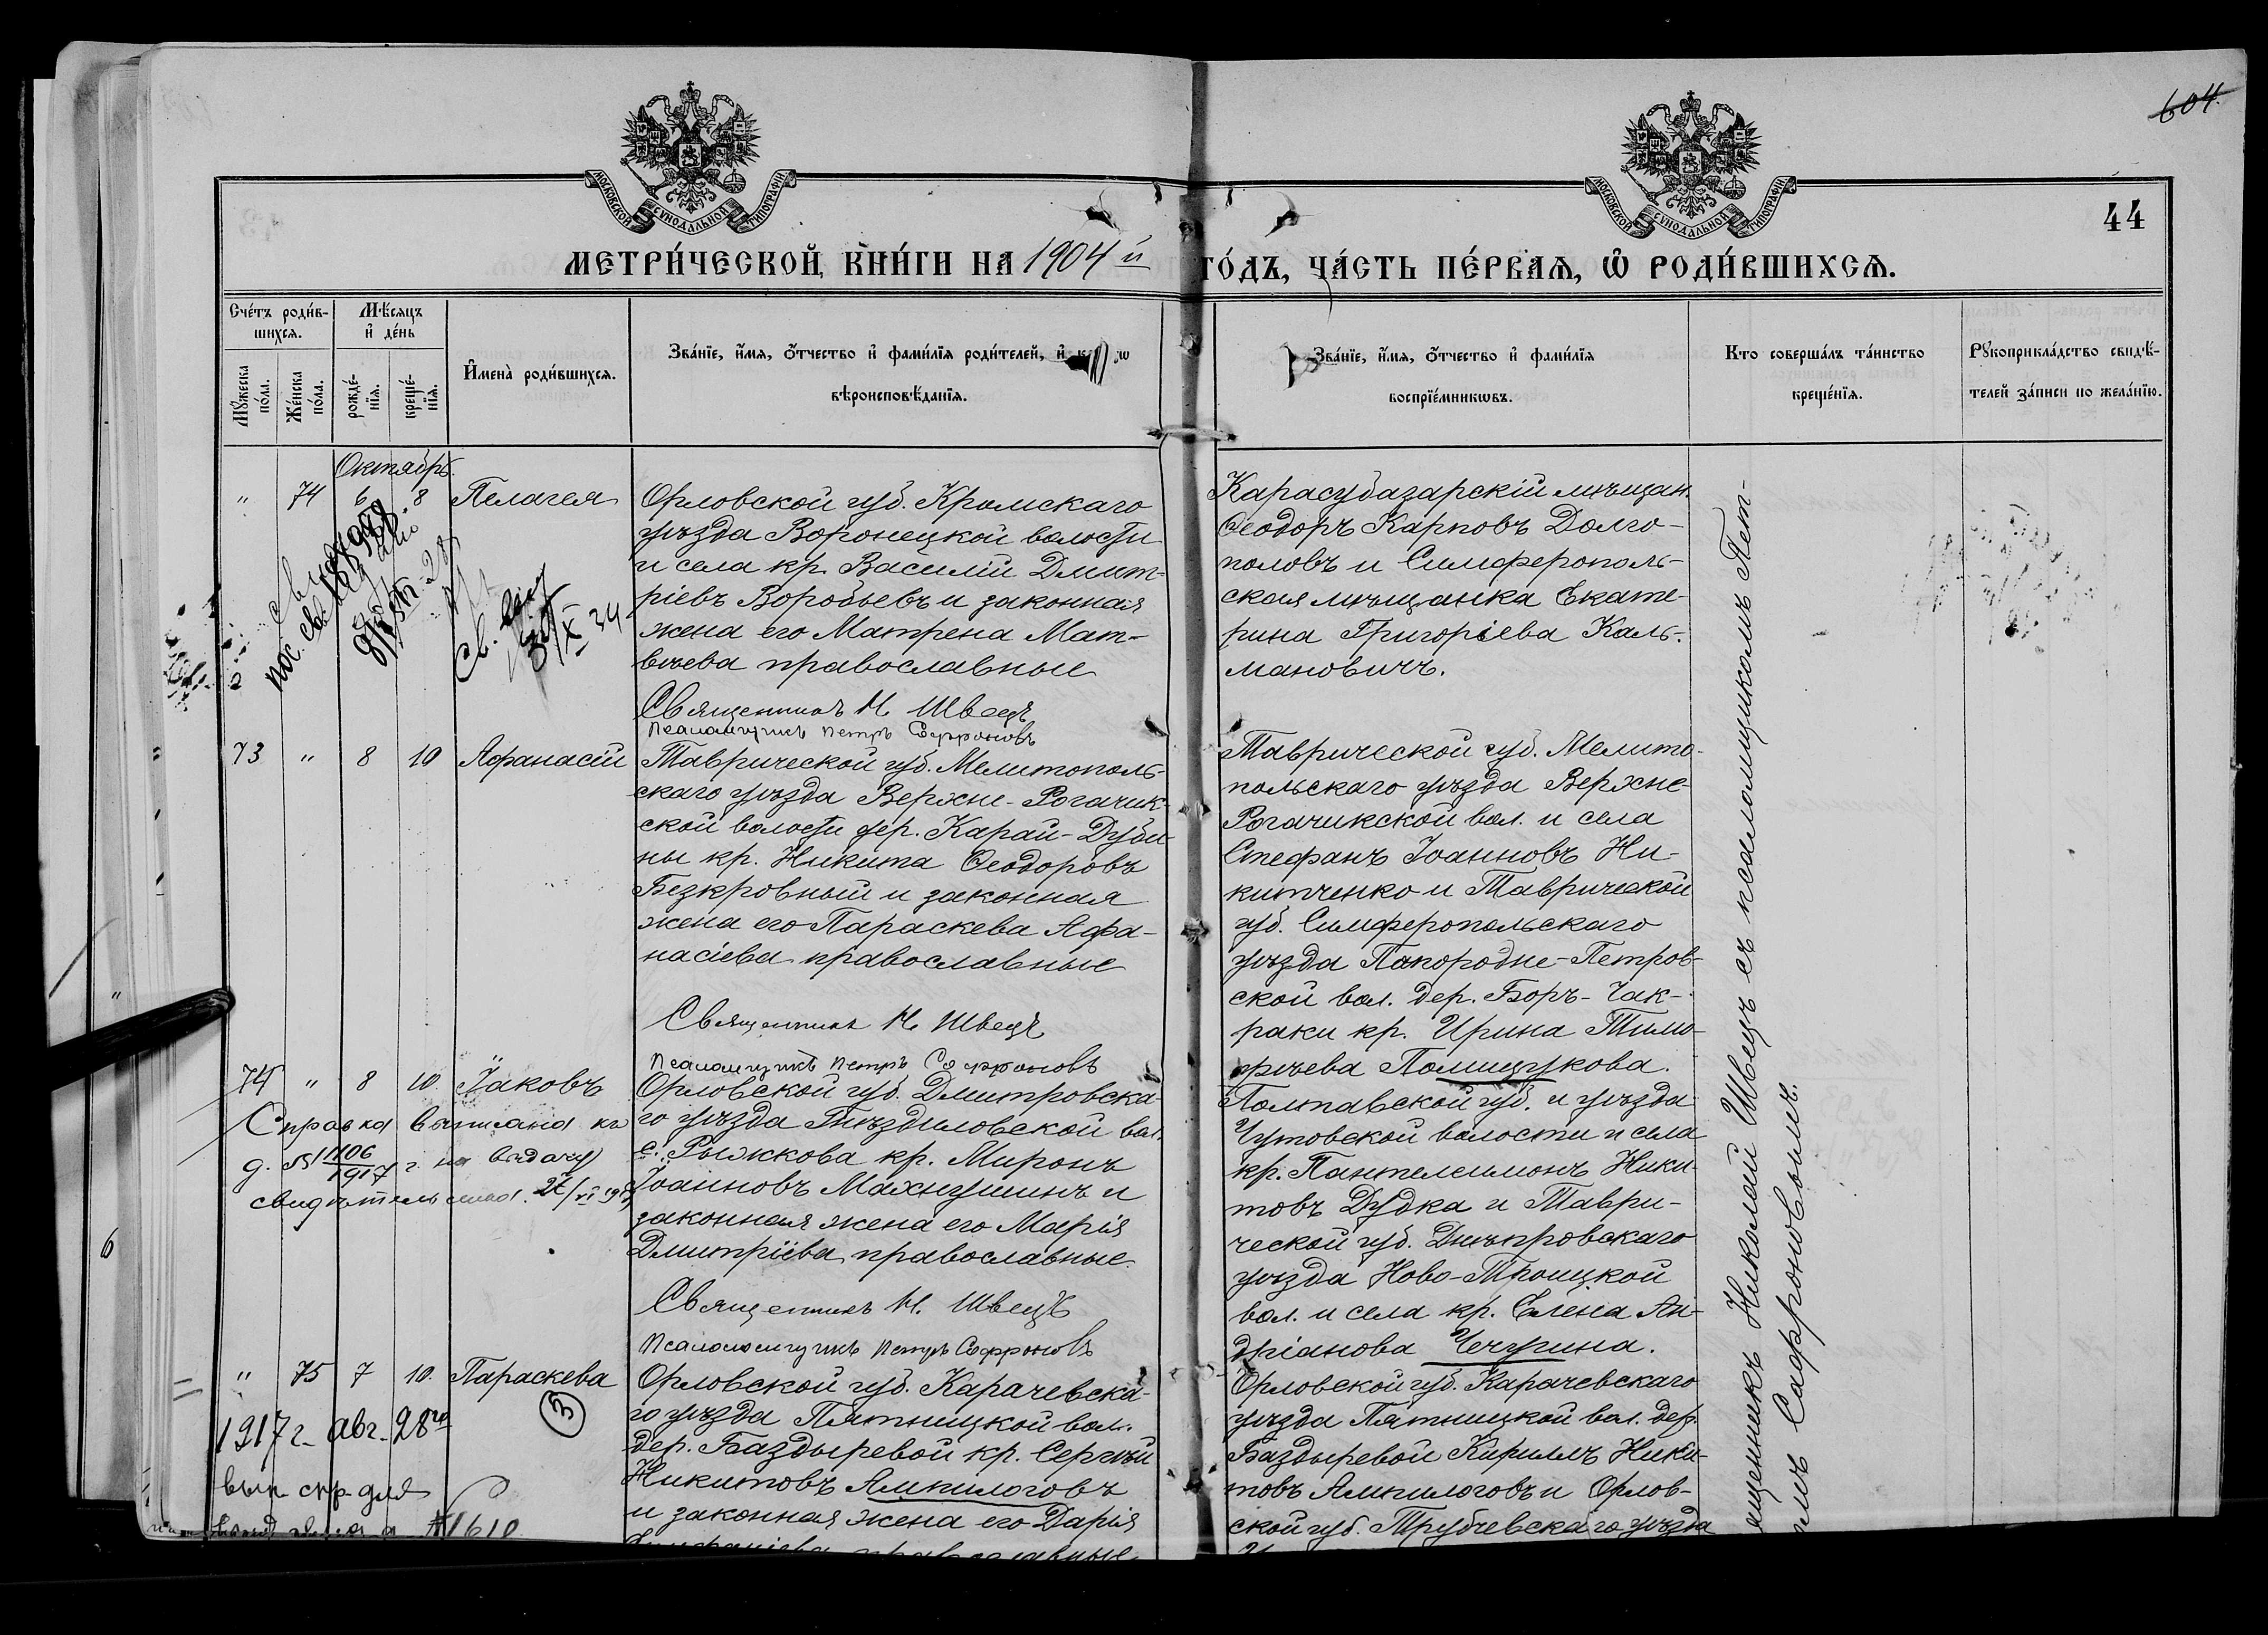 604.
МОСКОВСКОЙ СѴНОДАЛЬНОЙ ТИПОГРАФІИ
МОСКОВСКОЙ СѴНОДАЛЬНОЙ ТИПОГРАФІИ
44
МЕТРИ́ЧЕСКОЙ КНИ́ГИ НА 1904 й ГО́ДЪ, ЧА́СТЬ ПЕ́РВАЯ, Ѡ РОДИ́ВШИХСЯ.
Сче́тъ роди́в-
шихся.
Мꙋ́жеска по́ла.
Же́нска по́ла.
Мѣ́сяцъ и҆ де́нь
рожде́-
нїя.
креще́-
нїя.
И҆мена̀ роди́вшихся.
Зва́нїе, и҆́мя, ѻ҆́тчество и҆ фами́лїя роди́телей, и҆
вѣроисповѣ́данїя.
Зва́нїе, и҆́мя, ѻ҆́тчество и҆ фами́лїя
воспрїе́мникѡвъ.
Кто соверша́лъ та́инство
креще́нїя.
Рꙋкоприкла́дство свидѣ́-
телей за́писи по жела́нїю.
Октябрь.
" 74 6 8 Пелагея
Орловской губ. Кромскаго
уѣзда Воронецкой волости
и села кр. Василій Димит-
ріевъ Воробьевъ и законная
жена его Матрена Мат-
вѣева православные
Священникъ Н. Швецъ
Псаломщикъ Петръ Сафроновъ
Карасубазарскій мѣщан.
Ѳеодоръ Карповъ Долго-
половъ и Симферополь-
ская мѣщанка Екате-
рина Григоріева Каль-
мановичъ.
73 " 8 10 Афанасій
Таврической губ. Мелитополь-
скаго уѣзда Верхне-Рогачик-
ской волости дер. Карай-Дуби-
ны кр. Никита Ѳеодоровъ
Безкровный и законная
жена его Параскева Афа-
насіева православные
Священникъ Н. Швецъ
Псаломщикъ Петръ Сафроновъ
Таврической губ. Мелито-
польскаго уѣзда Верхне-
Рогачикской вол. и села
Стефанъ Іоанновъ Ни-
китченко и Таврической
губ. Симферопольскаго
уѣзда Петров-
ской вол. дер. Боръ-Чак-
раки кр. Ирина Тимо-
фѣева Помищукова.
74 " 8 10. Іаковъ
Справка выписана
д. № 1106/1917 г. на выдачу
свидѣтельства.
Орловской губ. Дмитровска-
го уѣзда Гнѣздиловской вол.
с. Рыжкова кр. Миронъ
Іоанновъ Махнушинъ и
законная жена его Марія
Димитріева православные
Священникъ Н. Швецъ
Псаломщикъ Петръ Сафроновъ
Полтавской губ. и уѣзда
Чутовской волости и села
кр. Пантелеимонъ Ники-
товъ Дудка и Таври-
ческой губ. Днѣпровскаго
уѣзда Ново-Троицкой
вол. и села кр. Елена Ан-
дріанова Чечурина.
" 75 7 10. Параскева
3
1917 г. авг. 28го
вып. спр. для
№ 1610
Орловской губ. Карачевска-
го уѣзда Пятницкой вол.
дер. Баздыревой кр. Сергѣй
Никитовъ Ампилоговъ
и законная жена его Дарія
православные
Орловской губ. Карачевскаго
уѣзда Пятницкой вол. дер.
Баздыревой Кириллъ Ники-
товъ Ампилоговъ и Орлов-
ской губ. Трубчевскаго уѣзда
Николай Швецъ съ псаломщикомъ Пет-
Сафроновымъ.
6